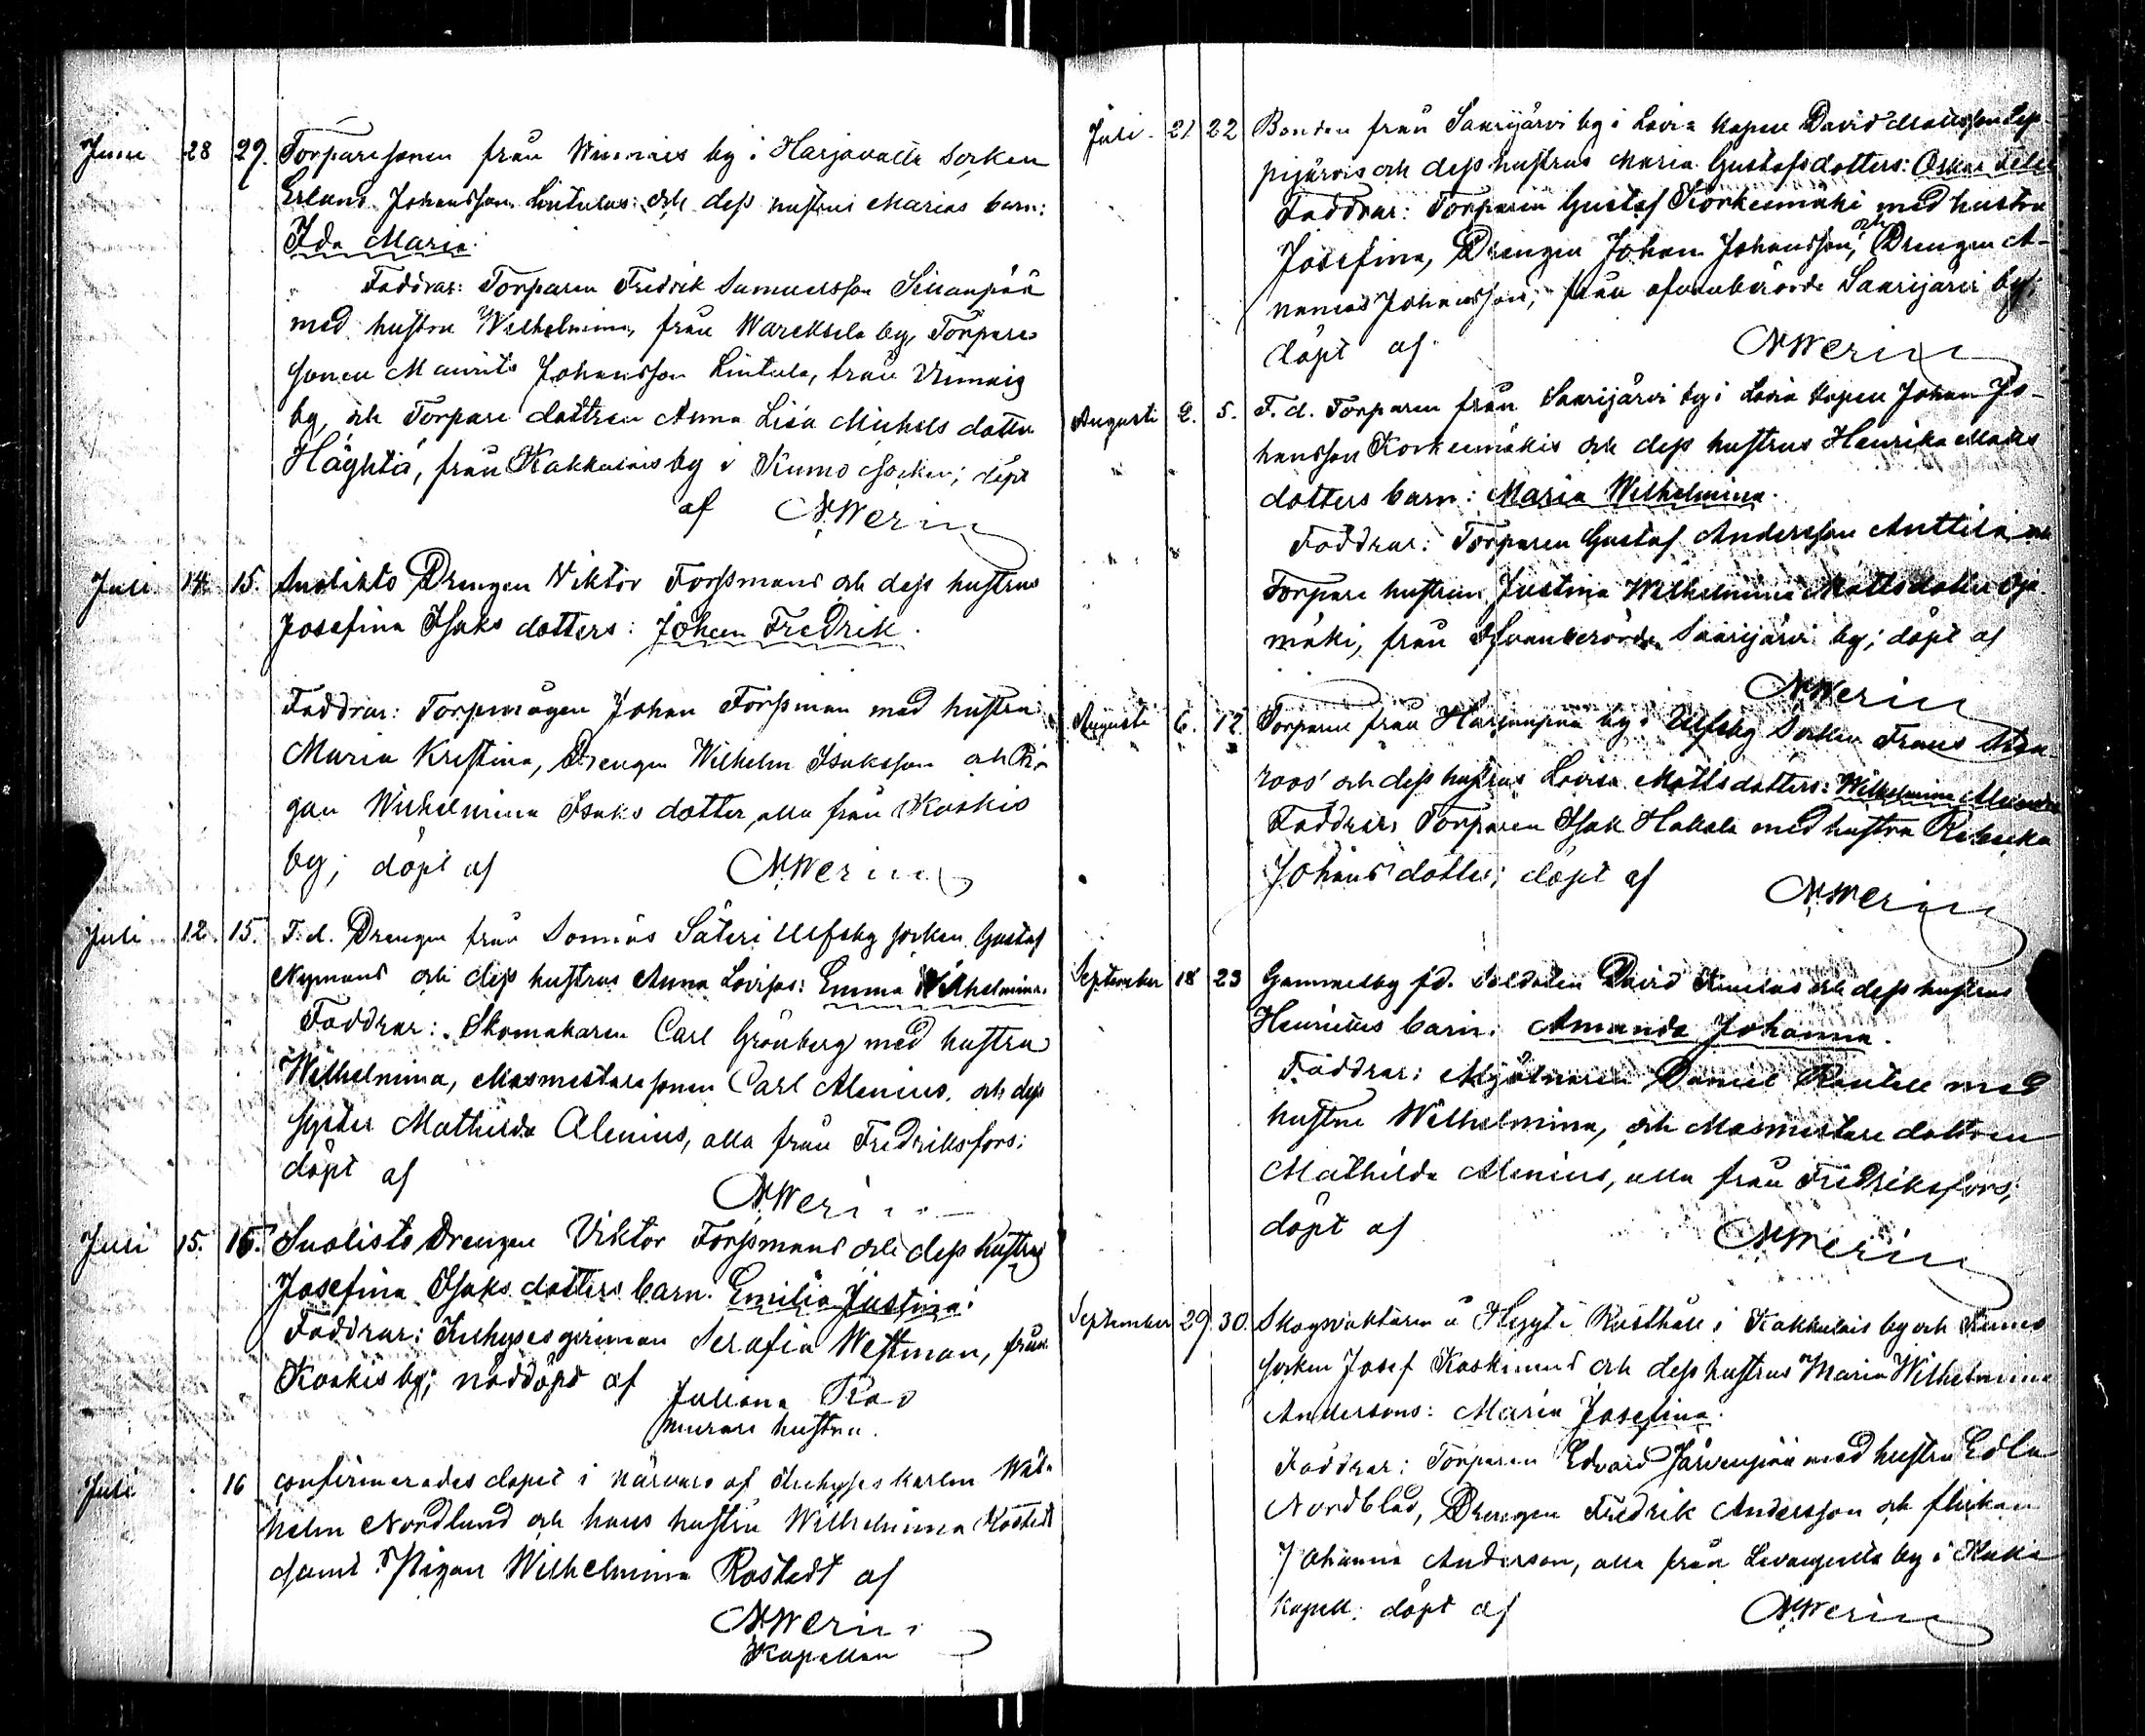 Juni 28 29. Torparesonen från Winnais by i Harjavalta Socken
Erland Johansson Lintulas och dess hustrus Marias barn:
Ida Maria.
Faddrar: Torparen Fredrik Samuelsson
med hustru Wilhelmina, från Wareksela by, Torpare
sonen Maurits Johansson Lintula, från Winnais
by, och Torpare dottren Anna Lisa Michels dotter
från Kakkulais by i Kumo Socken; döpt
af N.Werin
Juli 14. 15. Drengen Viktor Forssmans och dess hustrus
Josefina Isaks dotters: Johan Fredrik.
Faddrar: Johan Forssman med hustru
Maria Kristina, Drengen Wilhelm Isaksson och Pi-
gan Wilhelmina Isaks dotter, alla från Koskis
by; döpt af N.Werin
Juli 12. 15. F.d. Drengen från Sonnäs Säteri Ulfsby socken Gustaf
Nymans och dess hustrus Anna Lovisas: Emma Wilhelmina.
Faddrar: Skomakaren Carl Grönberg med hustru
Wilhelmina, Masmestaresonen Carl Alenius, och dess
syster Mathilda Alenius, alla från Fredriksfors;
döpt af
N.Werin
Juli 15. 15. Drengen Viktor Forssmans och dess hustrus
Josefina Isaks dotters barn: Emilia Justina.
Faddrar: Inhyses qvinnan Serafia Westman, från
Koskis by; nöddöpt af
Juliana
murare hustru.
Juli 16 confirmerades dopet i närvaro af Inhyses karlen Wil-
helm Nordlund och hans hustru Wilhelmina
samt Pigan Wilhelmina Rostedt af
N.Werin
Kapellan
Juli 21 22 Bonden från Saarijärvi by i Lavia Kapell David Mattsson Lep-
pijärvis och dess hustrus Maria Gustafsdotters: Oskar
Faddrar: Torparen Gustaf Korkeemäki med hustru
Josefina, Drengen Johan Johansson, och Drengen A-
nanias Johansson, från ofvanberörde Saarijärvi by;
döpt af N.Werin
Augusti 2. 5. F.d. Torparen från Saarijärvi by i Lavia Kapell Johan Jo-
hansson Korkeemäkis och dess hustrus Henrika Matts
dotters barn: Maria Wilhelmina.
Faddrar: Torparen Gustaf Andersson Anttila och
Torpare hustrun Justina Wilhelmina Mattsdotter Oja-
mäki, från Ofvanberörde Saarijärvi by; döpt af
N.Werin
Augusti 6. 12. Torparen från Harjunpää by i Ulfsby Socken Frans
och dess hustrus Lovisa Mattsdotters: Wilhelmina Alexandra
Faddrar: Torparen Isak Hakala med hustru Rebecka
Johansdotter; döpt af N.Werin
September 18 23 Gammelby f.d. Soldaten David och dess hustrus
barn: Amanda Johanna.
Faddrar: Mjölnaren Daniel med
hustru Wilhelmina, och Masmestare dottren
Mathilda Alenius, alla från Fredriksfors;
döpt af N.Werin
September 29. 30. Skogvaktaren å Rusthåll i Kakkulais by och Kumo
socken Josef Koskinens och dess hustrus Maria Wilhelmina
Andersons: Maria Josefina.
Faddrar: Torparen Edvard Järvenpää med hustru Edla
Nordblad, Drengen Fredrik Andersson och flickan
Johanna Anderson, alla från by i
Kapell; döpt af N.Werin